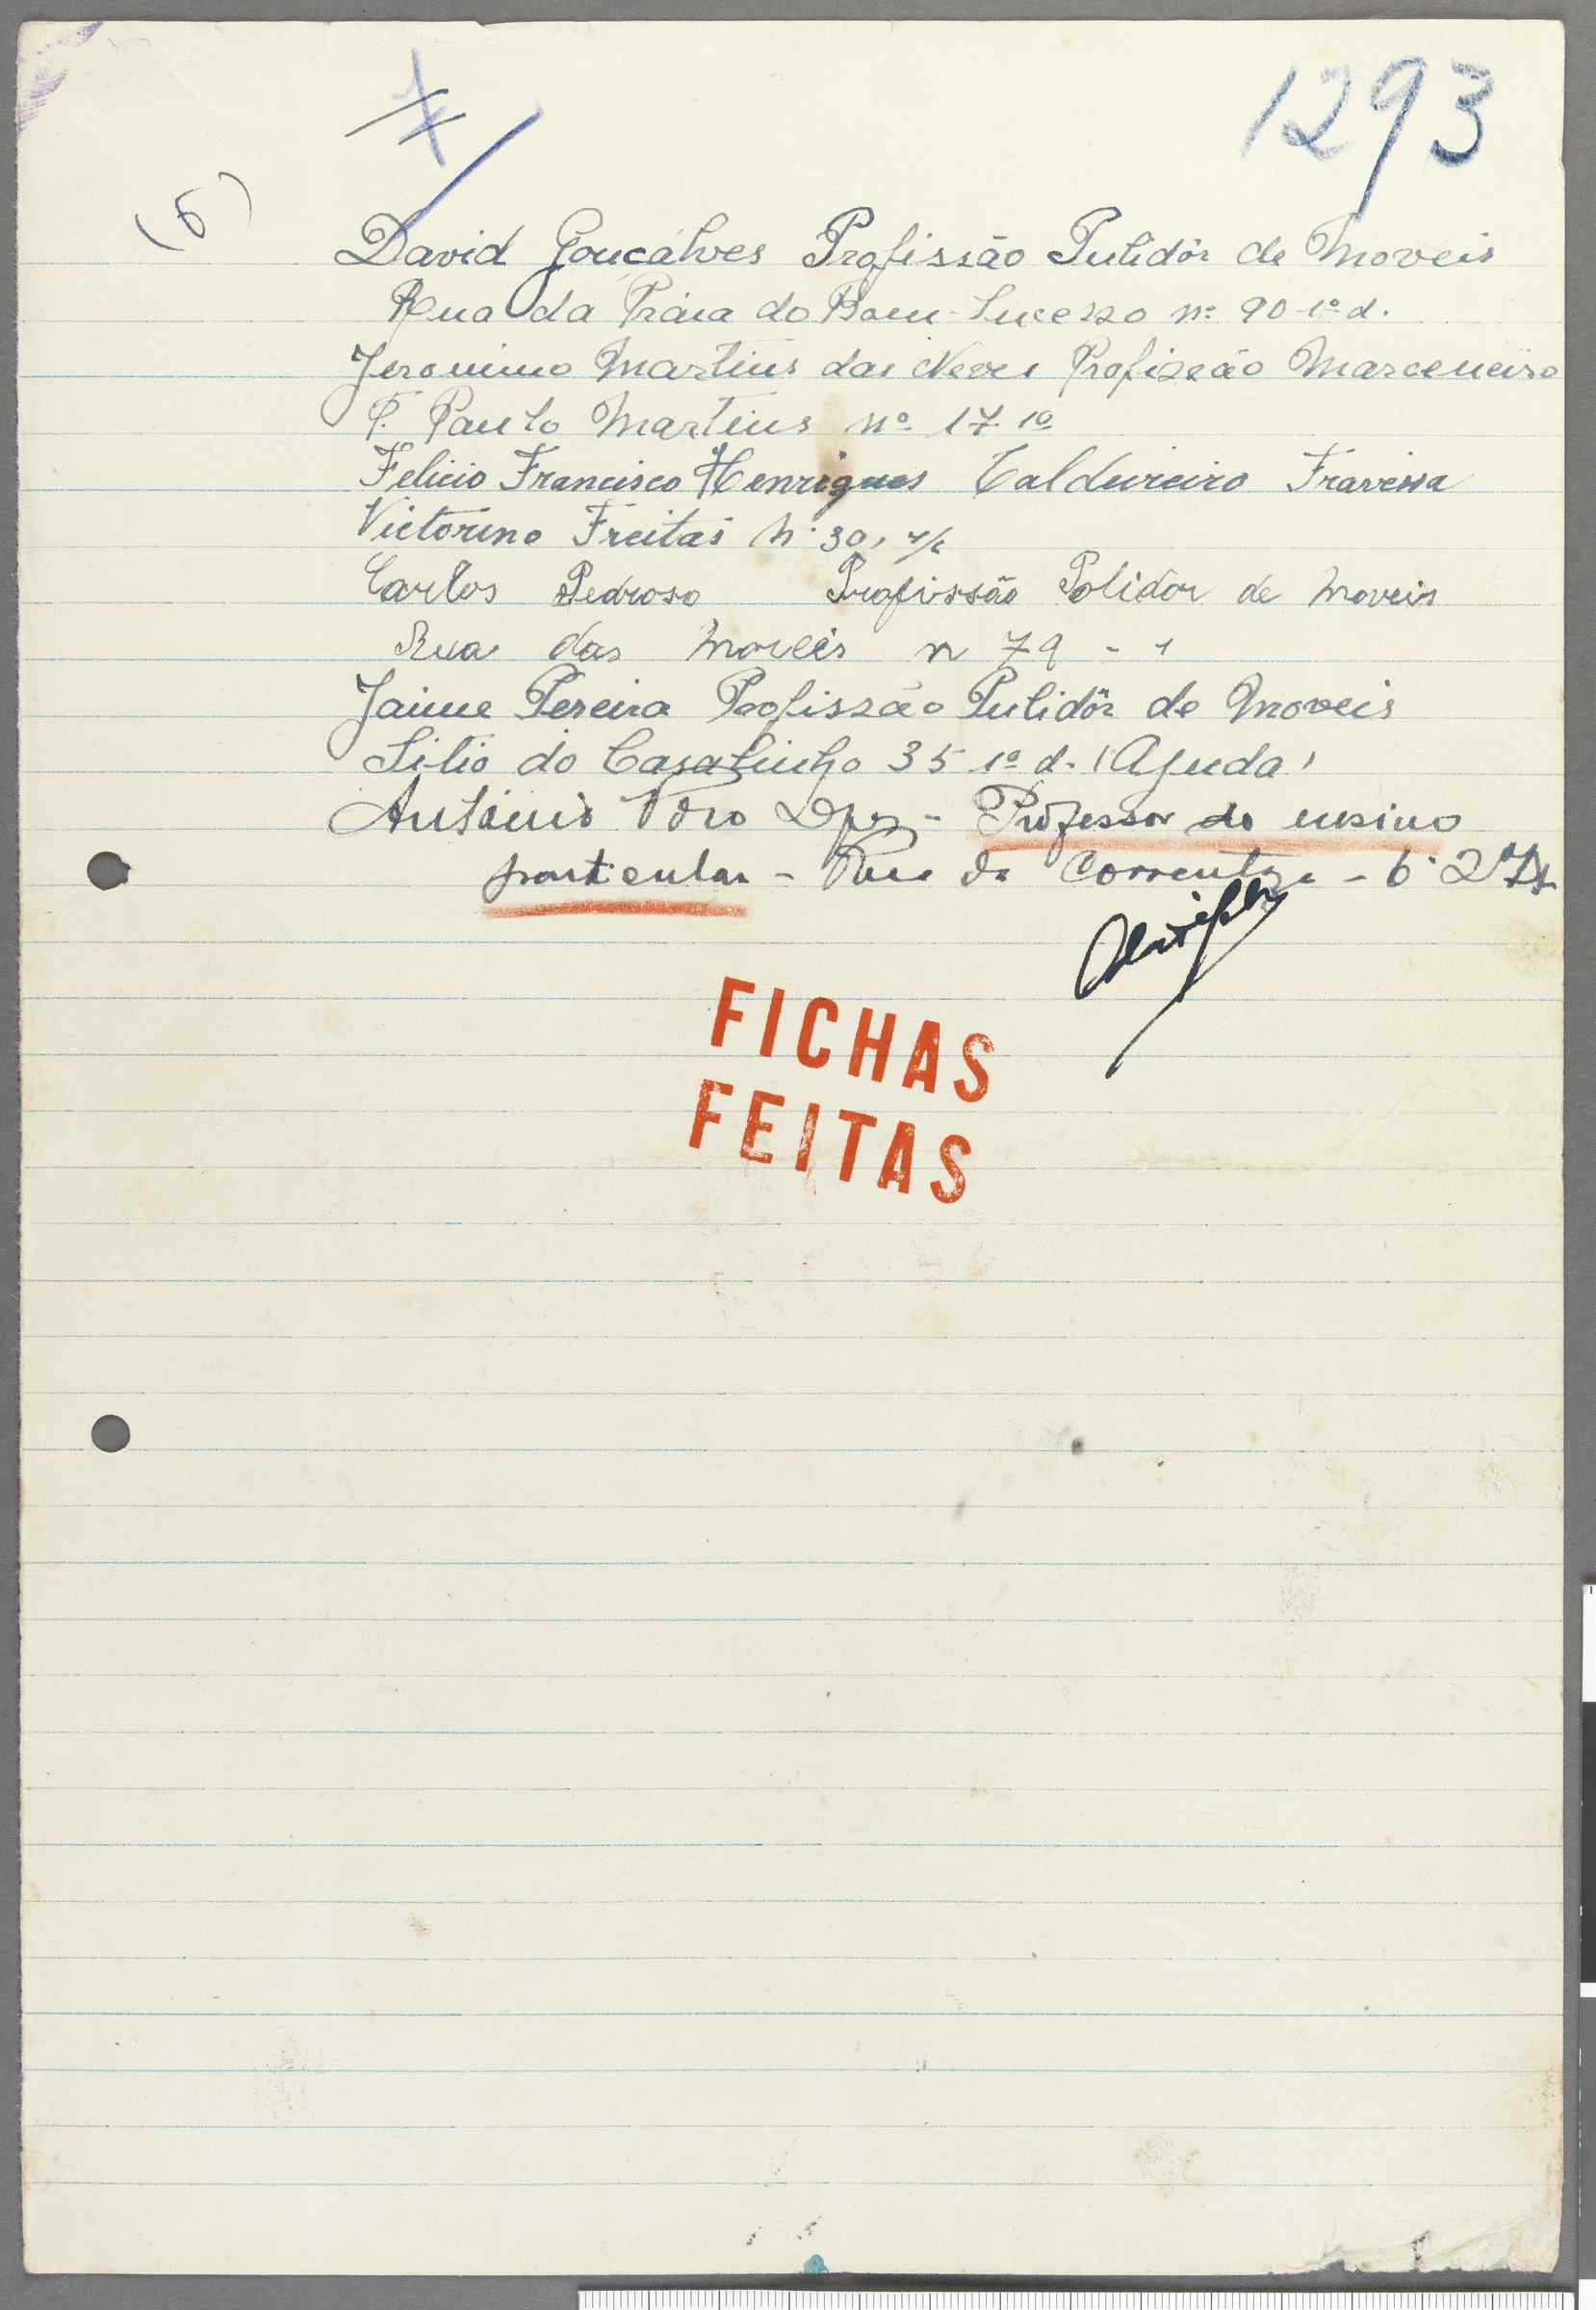 1293
7
(6)
David Gonçálves Profissão Pulidôr de Moveis
Rua da Práia do Bom-Sucesso nº 90-1º d.
Jeronimo Martins das Neves Profissão Marceneiro
T. Paulo Martins nº 17.1º
Felicio Francisco Henriques Caldureiro Travessa
Victorino Freitas Nº 30, r/c
Carlos Pedroso Profissão Polidor de moveis
Rua das n 79 - 1
Jaime Pereira Profissão Pulidôr de Moveis
Sitio do Casalinho 35 1º d. (Ajuda)
António Professor do ensino
particular - Rua da - 6 2º
FICHAS
FEITAS